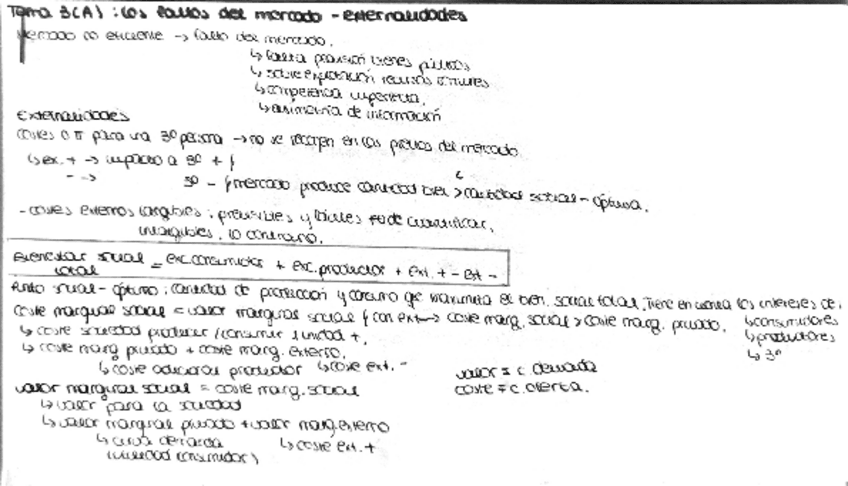 Tema 3(A): los fallos del mercado - externalidades
mercado no eficiente → fallo del mercado.
↳ falta provisión bienes públicos
↳ sobreexplotación recursos comunes
↳ competencia imperfecta.
↳ asimetría de información
Externalidades
costes o π para una 3ª persona → no se recogen en los precios del mercado.
↳ ex. + → impacto a 3º + /
- → 3º - / mercado produce cantidad > cantidad social-óptima.
- costes externos tangibles: previsibles y fáciles de cuantificar.
intangibles, lo contrario.
Bienestar social = exc. consumidor + exc. productor + ext. + - ext -
total
Punto social-óptimo: cantidad de producción y consumo que maximiza el bien. social total. Tiene en cuenta los intereses de:
coste marginal social = valor marginal social / con ext → coste marg. social > coste marg. privado. ↳ consumidores
↳ coste sociedad producir / consumir 1 unidad +. ↳ productores
↳ coste marg privado + coste marg. externo. ↳ 3º
↳ coste adicional productor ↳ coste ext. -
valor = c. demanda
valor marginal social = coste marg. social coste = c. oferta.
↳ valor para la sociedad
↳ valor marginal privado + valor marg. externo
↳ curva demanda ↳ coste ext. +
(utilidad consumidor)